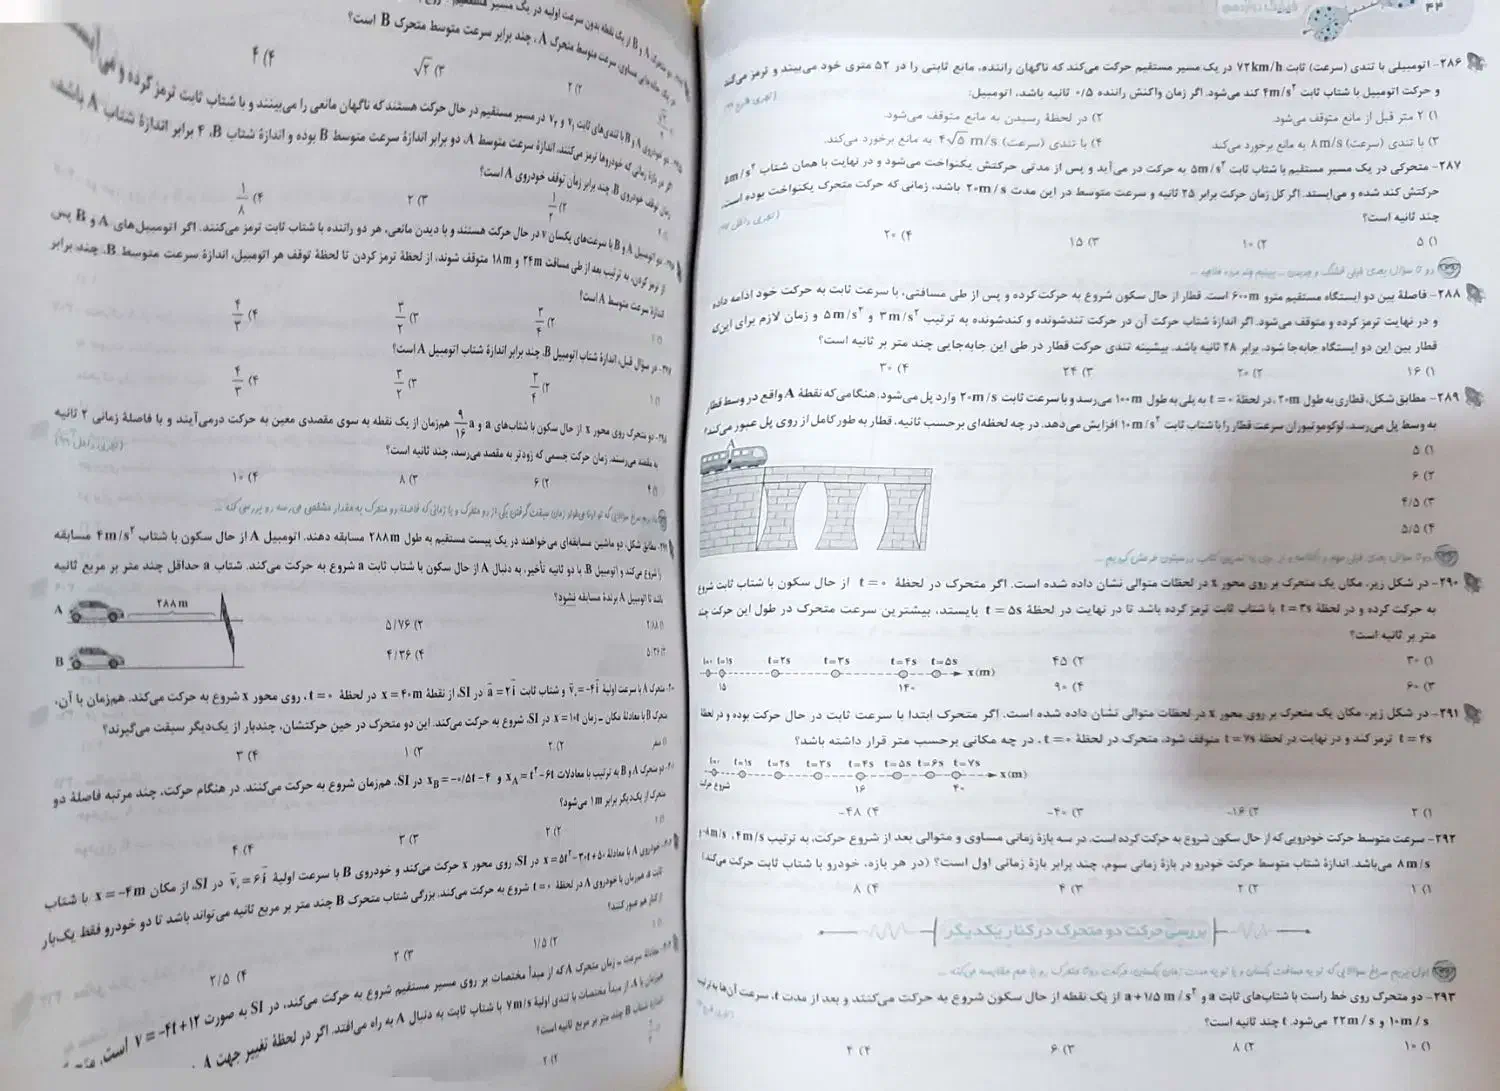 ۴۴
فیزیک دوازدهم
۲۸۶- اتومبیلی با تندی (سرعت) ثابت ۷۲km/h در یک مسیر مستقیم حرکت می‌کند که ناگهان راننده، مانع ثابتی را در ۵۲ متری خود می‌بیند و ترمز می‌کند
و حرکت اتومبیل با شتاب ثابت ۴m/s² کند می‌شود. اگر زمان واکنش راننده ۰/۵ ثانیه باشد، اتومبیل:
۱) ۲ متر قبل از مانع متوقف می‌شود.
۲) در لحظهٔ رسیدن به مانع متوقف می‌شود.
۳) با تندی (سرعت) ۸m/s به مانع برخورد می‌کند
۴) با تندی (سرعت) ۴√۵ m/s به مانع برخورد می‌کند.
۲۸۷- متحرکی در یک مسیر مستقیم با شتاب ثابت ۵m/s² به حرکت در می‌آید و پس از مدتی حرکتش یکنواخت می‌شود و در نهایت با همان شتاب ۵m/s²
حرکتش کند شده و می‌ایستد. اگر کل زمان حرکت برابر ۲۵ ثانیه و سرعت متوسط در این مدت ۲۰m/s باشد، زمانی که حرکت متحرک یکنواخت بوده است،
چند ثانیه است؟
۱) ۵ ۲) ۱۰ ۳) ۱۵ ۴) ۲۰
دو تا سؤال بعدی خیلی قشنگ و
۲۸۸- فاصلهٔ بین دو ایستگاه مستقیم مترو ۶۰۰m است. قطار از حال سکون شروع به حرکت کرده و پس از طی مسافتی، با سرعت ثابت به حرکت خود ادامه داده
و در نهایت ترمز کرده و متوقف می‌شود. اگر اندازهٔ شتاب حرکت آن در حرکت تندشونده و کندشونده به ترتیب ۳m/s² و ۵m/s² و زمان لازم برای این‌که
قطار بین این دو ایستگاه جابه‌جا شود، برابر ۲۸ ثانیه باشد، بیشینه تندی حرکت قطار در طی این جابه‌جایی چند متر بر ثانیه است؟
۱) ۱۶ ۲) ۲۰ ۳) ۲۴ ۴) ۳۰
۲۸۹- مطابق شکل، قطاری به طول ۲۰m، در لحظهٔ t = ۰ به پلی به طول ۱۰۰m می‌رسد و با سرعت ثابت ۲۰m/s وارد پل می‌شود. هنگامی که نقطهٔ A واقع در وسط قطار
به وسط پل می‌رسد، لوکوموتیوران سرعت قطار را با شتاب ثابت ۱۰m/s² افزایش می‌دهد. در چه لحظه‌ای برحسب ثانیه، قطار به طور کامل از روی پل عبور می‌کند؟
۱) ۵
۲) ۶
۳) ۴/۵
۴) ۵/۵
A
۲۹۰- در شکل زیر، مکان یک متحرک بر روی محور x در لحظات متوالی نشان داده شده است. اگر متحرک در لحظهٔ t = ۰ از حال سکون با شتاب ثابت شروع
به حرکت کرده و در لحظهٔ t = ۳s با شتاب ثابت ترمز کرده باشد تا در نهایت در لحظهٔ t = ۵s بایستد، بیشترین سرعت متحرک در طول این حرکت چند
متر بر ثانیه است؟
۱) ۳۰ ۲) ۴۵
۳) ۶۰ ۴) ۹۰
t=۰ t=۱s t=۲s t=۳s t=۴s t=۵s x(m)
۱۵ ۱۴۰
۲۹۱- در شکل زیر، مکان یک متحرک بر روی محور x در لحظات متوالی نشان داده شده است. اگر متحرک ابتدا با سرعت ثابت در حال حرکت بوده و در لحظهٔ
t = ۴s ترمز کند و در نهایت در لحظهٔ t = ۷s متوقف شود، متحرک در لحظهٔ t = ۰، در چه مکانی برحسب متر قرار داشته باشد؟
t=۰ t=۱s t=۲s t=۳s t=۴s t=۵s t=۶s t=۷s x(m)
شروع حرکت ۱۶ ۴۰
۱) ۲ ۲) ۱۶- ۳) ۴۰- ۴) ۴۸-
۲۹۲- سرعت متوسط حرکت خودرویی که از حال سکون شروع به حرکت کرده است، در سه بازهٔ زمانی مساوی و متوالی بعد از شروع حرکت، به ترتیب ۴m/s، ۸m/s- و
۸m/s می‌باشد. اندازهٔ شتاب متوسط حرکت خودرو در بازهٔ زمانی سوم، چند برابر بازهٔ زمانی اول است؟ (در هر بازه، خودرو با شتاب ثابت حرکت می‌کند)
۱) ۱ ۲) ۲ ۳) ۴ ۴) ۸
بررسی حرکت دو متحرک در کنار یکدیگر
۲۹۳- دو متحرک روی خط راست با شتاب‌های ثابت a و a+۱/۵ m/s² از یک نقطه از حال سکون شروع به حرکت می‌کنند و بعد از مدت t، سرعت آن‌ها به ترتیب
۱۰m/s و ۲۲m/s می‌شود. t چند ثانیه است؟
۱) ۱۰ ۲) ۸ ۳) ۶ ۴) ۴
A و B از یک نقطه بدون سرعت اولیه در یک مسیر
سرعت متوسط متحرک A، چند برابر سرعت متوسط متحرک B است؟
۲) ۲ ۳) √۲ ۴) ۴
A و B با تندی‌های ثابت v₁ و v₂ در مسیر مستقیم در حال حرکت هستند که ناگهان مانعی را می‌بینند و با شتاب ثابت ترمز کرده و
اگر در بازهٔ زمانی که خودروها ترمز می‌کنند، اندازهٔ سرعت متوسط A، دو برابر اندازهٔ سرعت متوسط B بوده و اندازهٔ شتاب B، ۴ برابر اندازهٔ شتاب A باشد،
زمان توقف خودروی B، چند برابر زمان توقف خودروی A است؟
۲) ۱/۲ ۳) ۲ ۴) ۱/۸
دو اتومبیل A و B با سرعت‌های یکسان v در حال حرکت هستند و با دیدن مانعی، هر دو راننده با شتاب ثابت ترمز می‌کنند. اگر اتومبیل‌های A و B پس
از ترمز کردن، به ترتیب بعد از طی مسافت ۲۴m و ۱۸m متوقف شوند، از لحظهٔ ترمز کردن تا لحظهٔ توقف هر اتومبیل، اندازهٔ سرعت متوسط B، چند برابر
اندازهٔ سرعت متوسط A است؟
۱) ۱ ۲) ۳/۴ ۳) ۳/۲ ۴) ۴/۳
۲۹۷- در سؤال قبل، اندازهٔ شتاب اتومبیل B، چند برابر اندازهٔ شتاب اتومبیل A است؟
۱) ۱ ۲) ۳/۴ ۳) ۳/۲ ۴) ۴/۳
۲۹۸- دو متحرک روی محور x از حال سکون با شتاب‌های a و ۹/۱۶ a همزمان از یک نقطه به سوی مقصدی معین به حرکت درمی‌آیند و با فاصلهٔ زمانی ۲ ثانیه
به مقصد می‌رسند. زمان حرکت جسمی که زودتر به مقصد می‌رسد، چند ثانیه است؟
۱) ۴ ۲) ۶ ۳) ۸ ۴) ۱۰
۲۹۹- مطابق شکل، دو ماشین مسابقه‌ای می‌خواهند در یک پیست مستقیم به طول ۲۸۸m مسابقه دهند. اتومبیل A از حال سکون با شتاب ۴m/s² مسابقه
را شروع می‌کند و اتومبیل B، با دو ثانیه تأخیر، به دنبال A از حال سکون با شتاب ثابت a شروع به حرکت می‌کند. شتاب a حداقل چند متر بر مربع ثانیه
باشد تا اتومبیل A برندهٔ مسابقه نشود؟
۲) ۵/۷۶
۴) ۴/۳۶
A ۲۸۸m
B
متحرک A با سرعت اولیهٔ v₀ = -۴i و شتاب ثابت a = ۲i در SI، از نقطهٔ x = ۴۰m در لحظهٔ t = ۰، روی محور x شروع به حرکت می‌کند. همزمان با آن،
متحرک B با معادلهٔ مکان ـ زمان x = ۱۰t در SI، شروع به حرکت می‌کند. این دو متحرک در حین حرکتشان، چندبار از یک‌دیگر سبقت می‌گیرند؟
۱) صفر ۲) ۲ ۳) ۱ ۴) ۳
دو متحرک A و B به ترتیب با معادلات x_A = t² - ۶t و x_B = -۰/۵t - ۴ در SI، همزمان شروع به حرکت می‌کنند. در هنگام حرکت، چند مرتبه فاصلهٔ دو
متحرک از یک‌دیگر برابر ۱m می‌شود؟
۱) ۱ ۲) ۲ ۳) ۳ ۴) ۴
خودروی A با معادلهٔ x = ۵t² - ۳۰t + ۵۰ در SI، روی محور x حرکت می‌کند و خودروی B با سرعت اولیهٔ v₀ = ۶i در SI، از مکان x = -۴m با شتاب
ثابت a، همزمان با خودروی A در لحظهٔ t = ۰ شروع به حرکت می‌کند. بزرگی شتاب متحرک B چند متر بر مربع ثانیه می‌تواند باشد تا دو خودرو فقط یک‌بار
از کنار هم عبور کنند؟
۱) ۱ ۲) ۱/۵ ۳) ۲ ۴) ۲/۵
معادلهٔ سرعت ـ زمان متحرک A که از مبدأ مختصات بر روی مسیر مستقیم شروع به حرکت می‌کند، در SI به صورت v = -۴t + ۱۲ است.
همزمان با A، از مبدأ مختصات با تندی اولیهٔ ۷m/s با شتاب ثابت به دنبال A به راه می‌افتد. اگر در لحظهٔ تغییر جهت A
اندازهٔ شتاب B چند متر بر مربع ثانیه است؟
۲) ۲